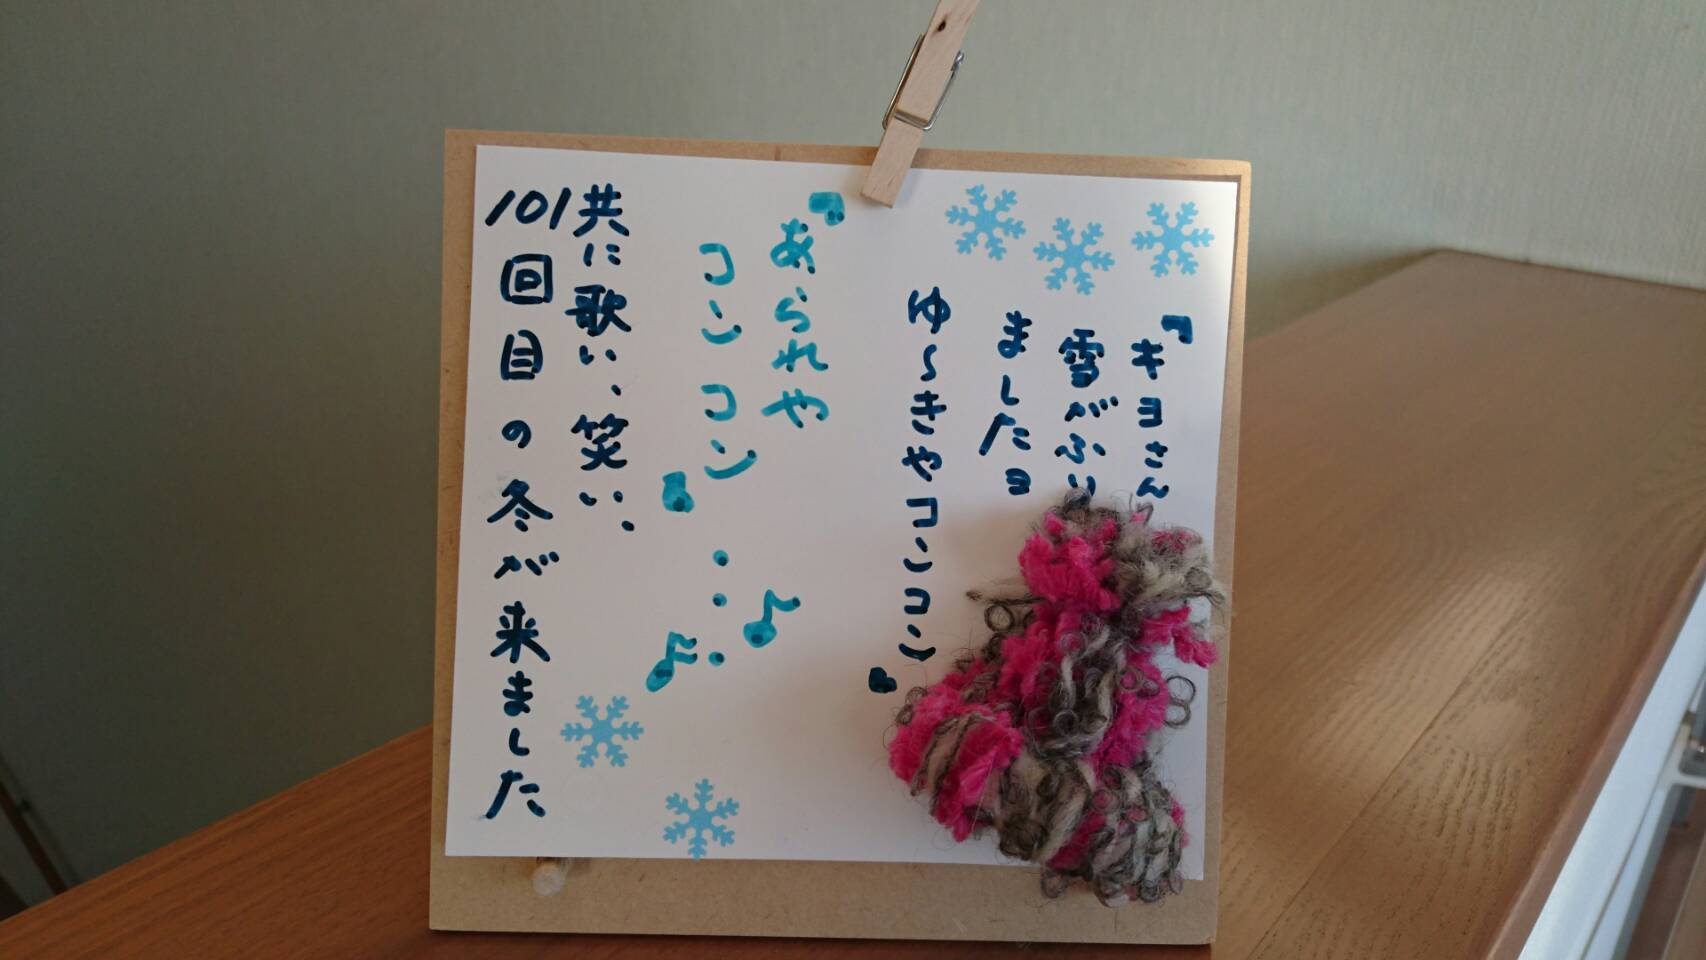 『キヨさん
雪がふり
ましたョ
ゆ～きやコンコン』
『あられや
コンコン』
・・・♪♪
共に歌い、笑い、
101回目の冬が来ました